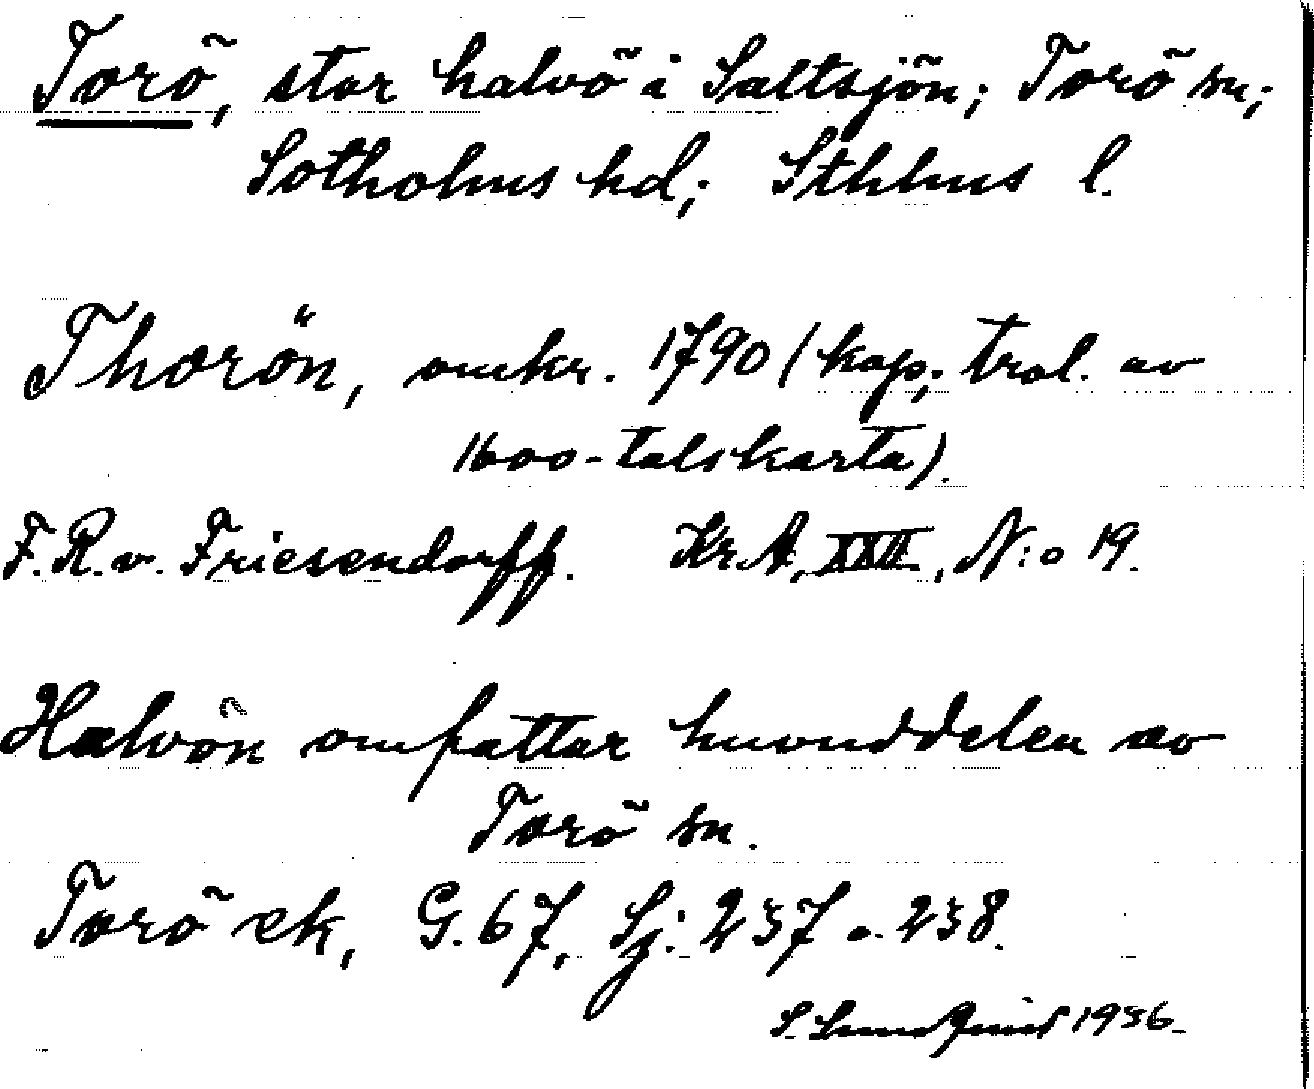 Torö, stor halvö i Saltsjön; Torö sn;
Sotholms hd; Sthlms l.
Thorön, omkr. 1790 (kop; trol. av
1600-talskarta).
F.R.v. Friesendorff. Kr.A, XXII, N:o 19.
Halvön omfattar huvuddelen av
Torö sn.
Torö ek, G. 67, Sj: 237 o. 238.
S. Lundquist 1936.